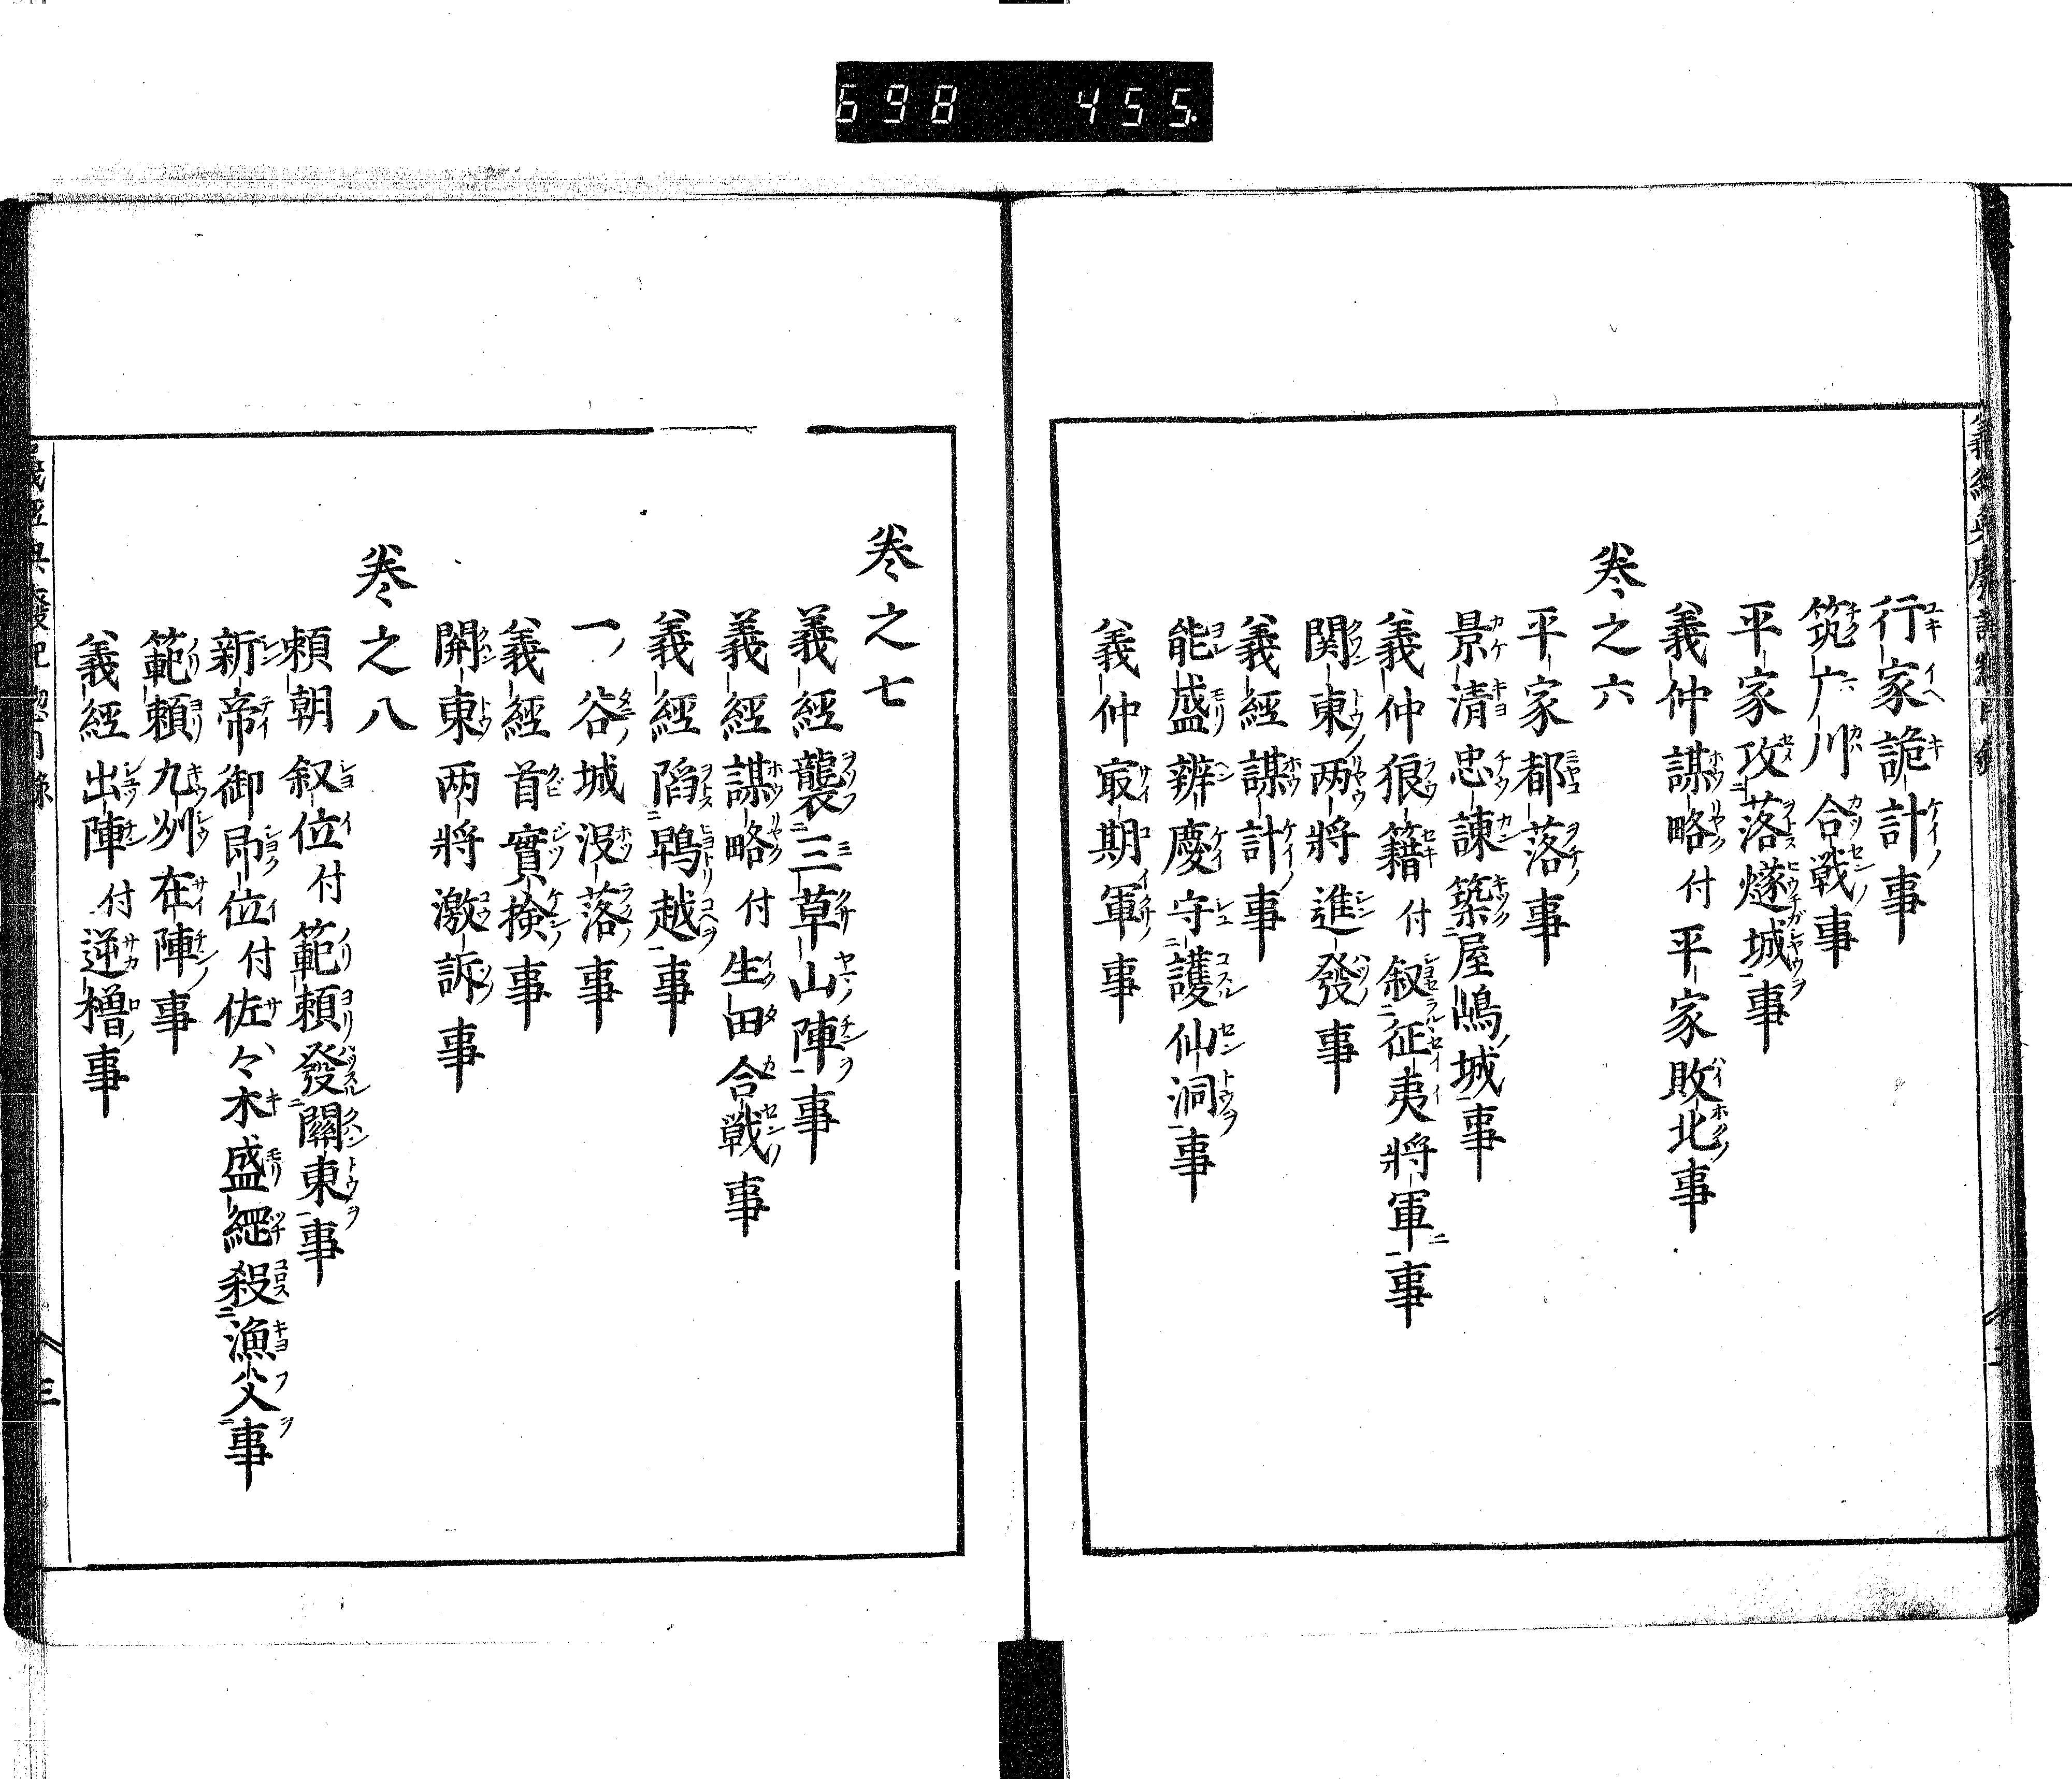 698 455
行家詭計事
筑广川合戦事
平家攻落燧城事
義仲謀略付平家敗北事
巻之六
平家都落事
景清忠諌築屋嶋城事
義仲狼籍付叙征夷将軍事
関東两将進發事
義經謀計事
能盛辨慶守護仙洞事
義仲冣期軍事
巻之七
義經襲三草山陣事
義經謀略付生田合戦事
義經陷鵯越事
一谷城没落事
義經首實検事
関東两将激訴事
巻之八
頼朝叙位付範頼發關東事
新帝御即位付佐々木盛綱殺漁父事
範頼九州在陣事
義經出陣付逆櫓事
三